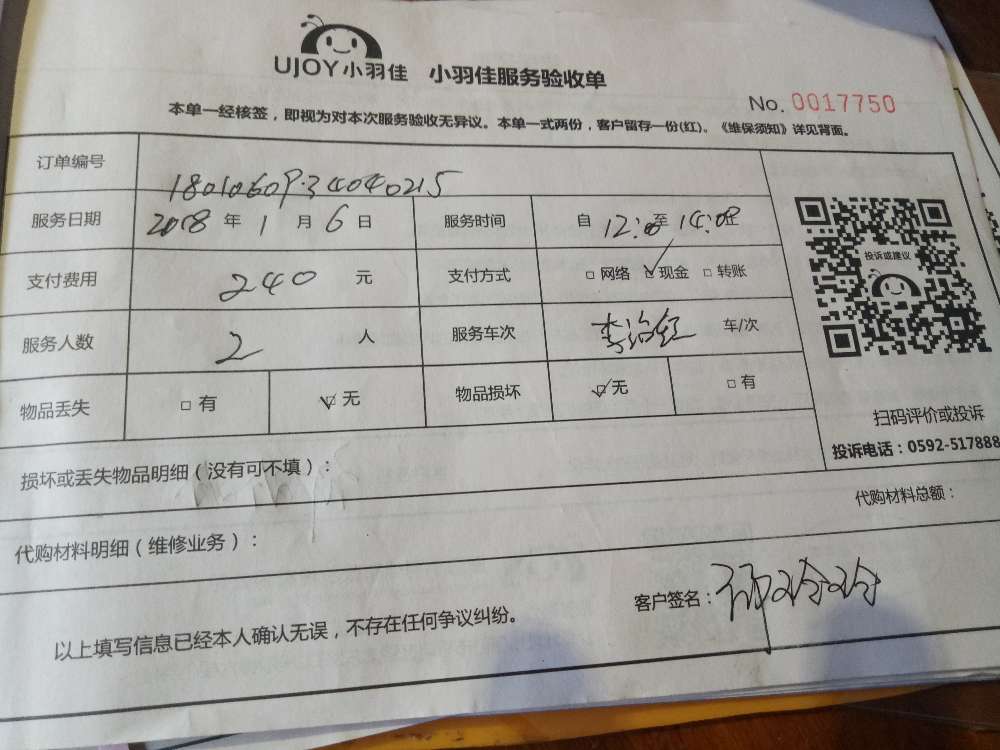 UJOY小羽佳 小羽佳服务验收单
No. 0017750
本单一经核签，即视为对本次服务验收无异议。本单一式两份，客户留存一份(红)。《维保须知》详见背面。
订单编号 18010609·34040215
服务日期 2018 年 1 月 6 日 服务时间 自 12:00 至 14:00
支付费用 240 元 支付方式 □ 网络 ☑ 现金 □ 转账
服务人数 2 人 服务车次 李治红 车/次
物品丢失 □ 有 ☑ 无 物品损坏 ☑ 无 □ 有
投诉或建议
扫码评价或投诉
投诉电话：0592-517888
损坏或丢失物品明细（没有可不填）：
代购材料总额：
代购材料明细（维修业务）：
客户签名：
以上填写信息已经本人确认无误，不存在任何争议纠纷。